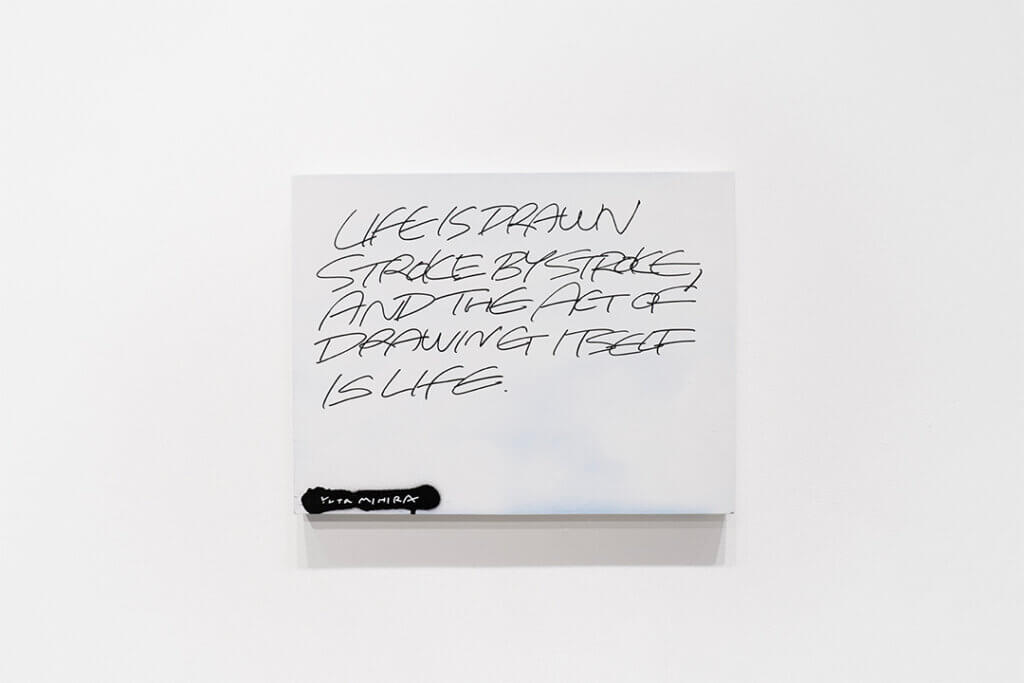 LIFE IS DRAWN
STROKE BY STROKE,
AND THE ACT OF
DRAWING ITSELF
IS LIFE.
YUTA MIHIRA